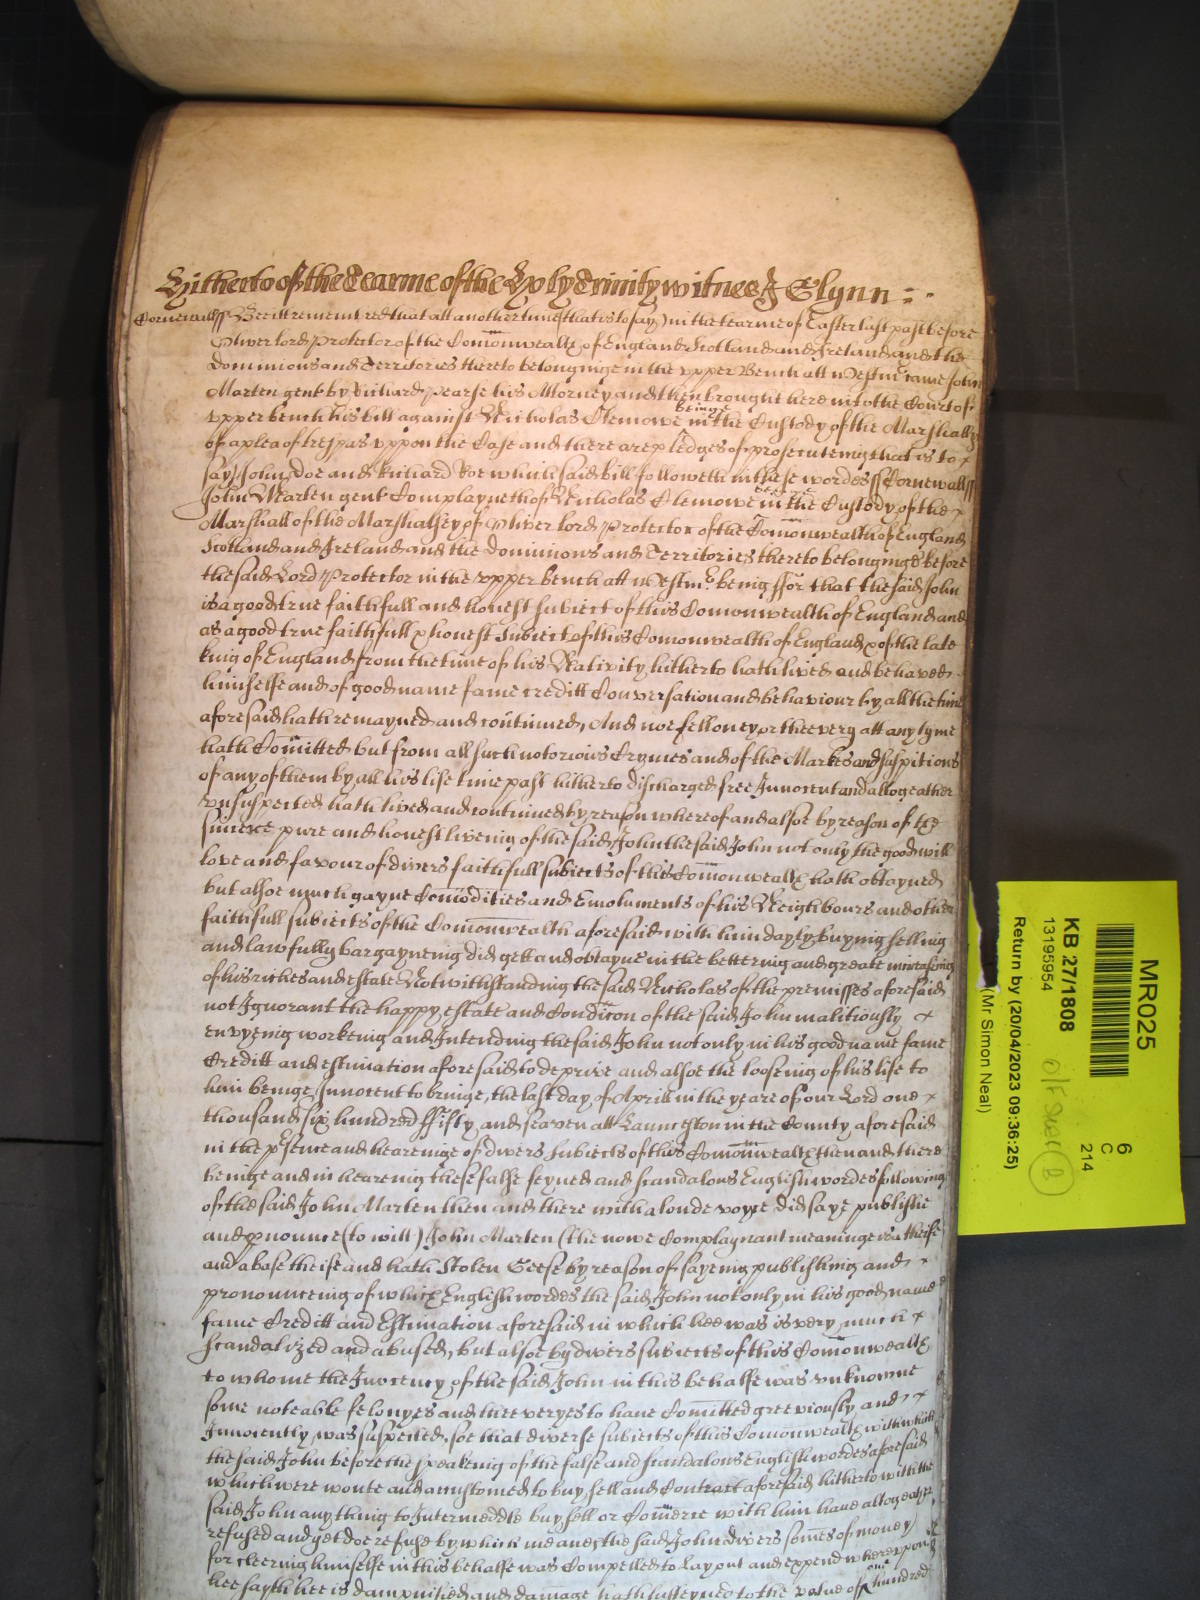 Hitherto of the Tearme of the Holy Trinity witnes J Glynn :.
Cornewall ss Bee itt remembred that att another time (that is to say) in the tearme of Easter last past before
Oliver lord Protector of the Comonwealth of England Scotland and Ireland and the
dominions and Territories thereto belonginge in the vpper Bench att Westmr came John
Marten gent by Richard Pearse his Attorney and then brought here into the Court of
vpper bench his bill against Nicholas Clemowe beinge in the Custody of the Marshall
of a plea of trespas vppon the Case and there are pledges of prosecuteing that is to x
say John Doe and Richard Roe which said bill followeth in these wordes ss Cornewall ss
John Marten gent Complayneth of Nicholas Clemowe beinge in the Custody of the x
Marshall of the Marshalsey of Oliver lord Protector of the Comonwealth of England
Scotland and Ireland and the Dominions and Territories thereto belonginge before
the said Lord Protector in the vpper bench att Westmr being ffor that the said John
is a good true faithfull and honest subiect of this Comonwealth of England and
as a good true faithfull & honest Subiect of this Comonwealth of England & of the late
king of England from the time of his Nativity hitherto hath lived and behaved
himselfe and of good name fame creditt Conversation and behaviour by all the time
aforesaid hath remayned and continued, And noe felloney or theevery att any tyme
hath Comitted but from all such notorious Crymes and of the Markes and suspitions
of any of them by all his life time past hitherto discharged free Innocent and altogeather
vnsuspected hath lived and continued by reason whereof and alsoe by reason of the
sincere pure and honest liveing of the said John the said John not only the good will
love and favour of divers faithfull subiects of this Comonwealth hath obtayned
but alsoe much gayne Comodities and Emoluments of his Neighbours and other
faithfull subiects of the Comonwealth aforesaid with him dayly buying selling
and lawfully bargayneing did gett and obtayne in the bettering and greate increasing
of his riches and estate Notwithstanding the said Nicholas of the premisses aforesaid
not Ignorant the happy estate and Condicon of the said John malitiously &
envyeing workeing and Intending the said John not only in his good name fame
Creditt and estimation aforesaid to deprive and alsoe the looseing of his life to
him beinge Innocent to bringe, the last day of Aprill in the yeare of our Lord one x
thousand six hundred ffifty and seaven att Launceston in the County aforesaid
in the psence and heareinge of divers subiects of this Comonwealth then and there
beinge and in heareing these false feyned and scandalous English wordes following
of the said John Marten then and there with a loude voyce did saye publishe
and pnounce (to witt) John Marten (the nowe Complaynant meaninge) is a theife
and a base theife and hath Stolen Geese by reason of sayeing publishing and x
pronounceing of which English wordes the said John not only in his good name
fame Creditt and Estimation aforesaid in which hee was is very much x
scandalized and abused, but alsoe by divers subiects of this Comonwealth
to whome the Inocency of the said John in this behalfe was vnknowne
some noteable felonyes and theeveryes to have Comitted greeviously and x x
Innocently was suspected, soe that diverse subiects of this Comonwealth with which
the said John before the speakeing of the false and scandalous English wordes aforesaid
which were wonte and accustomed to buy sell and Contract aforesaid hitherto with the
said John any thing to Intermeddle buy sell or Comerce with him have altogeather
refused and yet doe refuse by which meanes the said John divers somes of money
for cleering himselfe in this behalfe was Compelled to lay out and expend whereupon
hee sayth hee is dampnified and damage hath susteyned to the value of one hundred
MR025
KB 27/1808
13195954
6
C
214
Return by (20/04/2023 09:36:25)
(Mr Simon Neal)